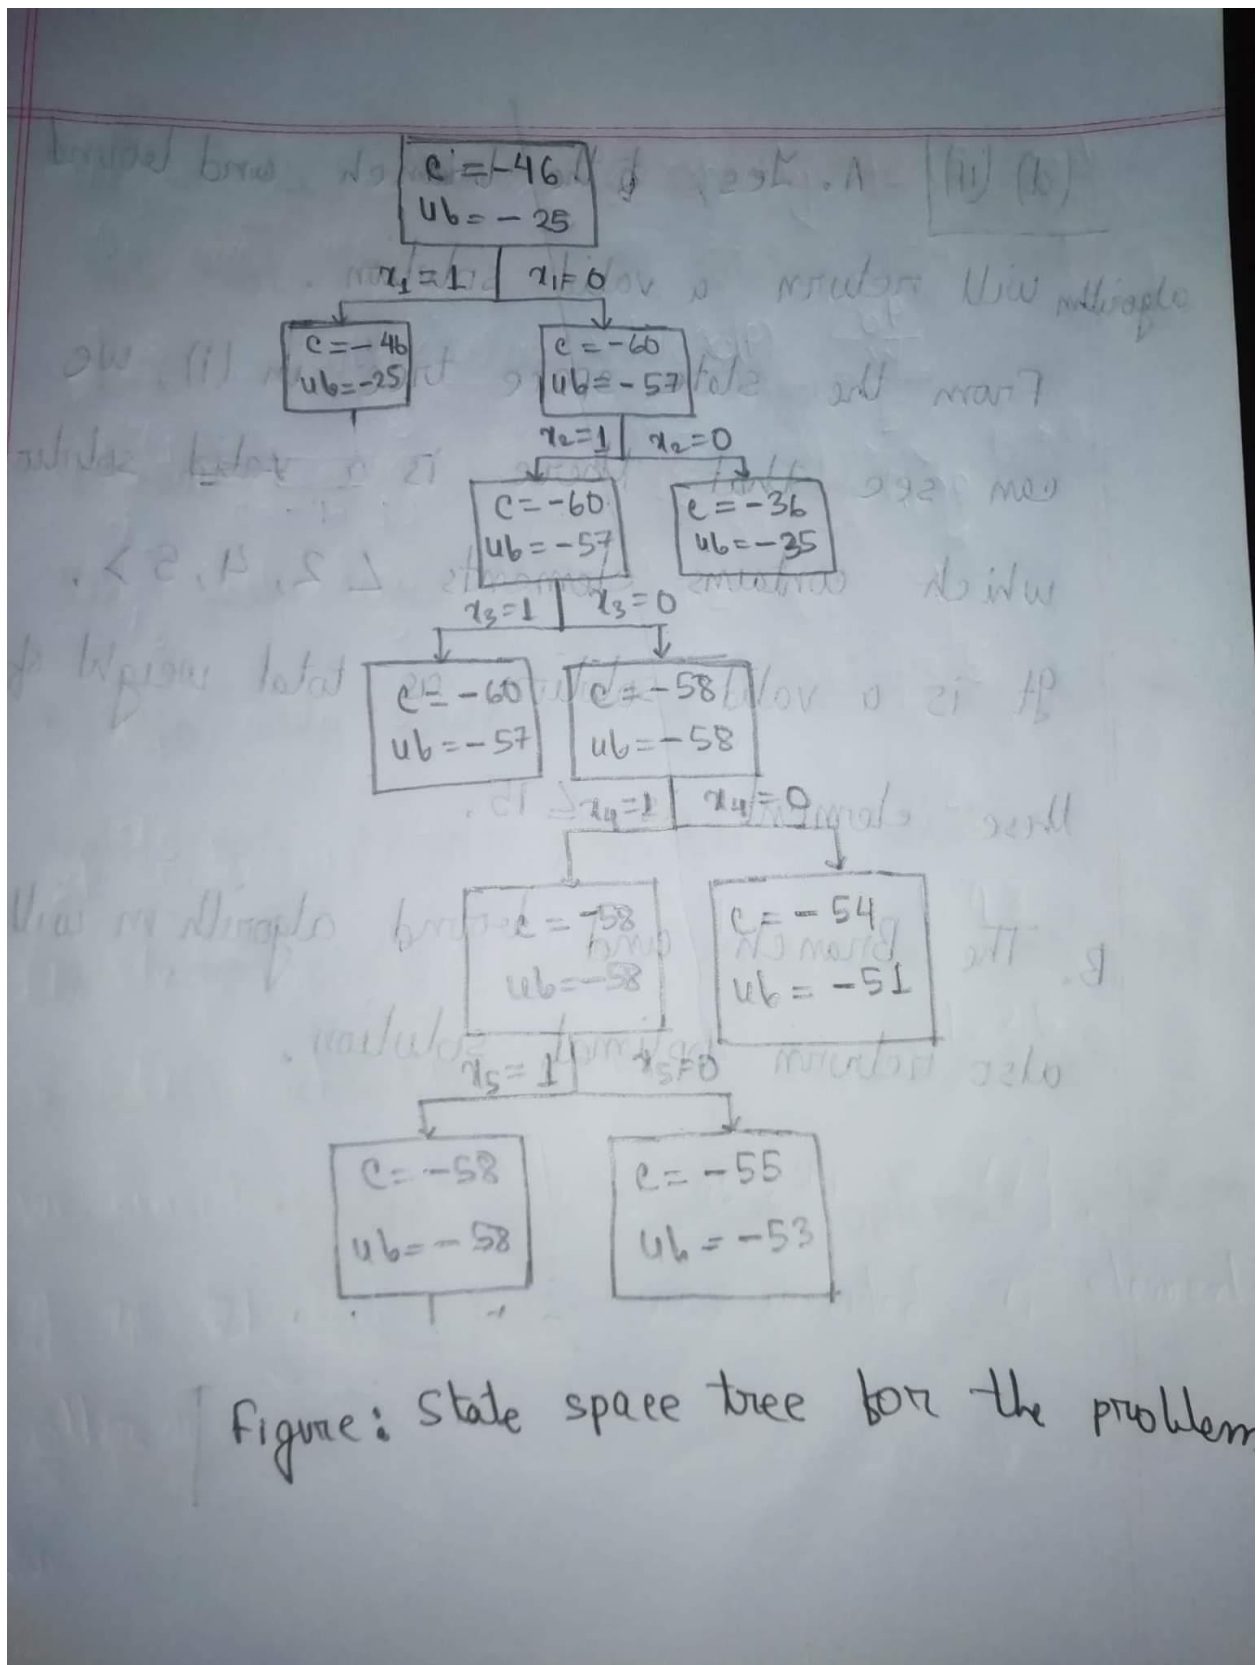 c = -46
ub = - 25
x1 = 1 x1=0
c = - 46
ub = -25
c = -60
ub = - 57
x2=1 x2=0
c = -60
ub = -57
c = -36
ub = -35
x3=1 x3=0
c = -60
ub = -57
c = -58
ub = -58
x4=1 x4=0
c = -58
ub = -58
c = - 54
ub = -51
x5=1 x5=0
c = -58
ub = - 58
c = -55
ub = -53
Figure: State space tree for the problem